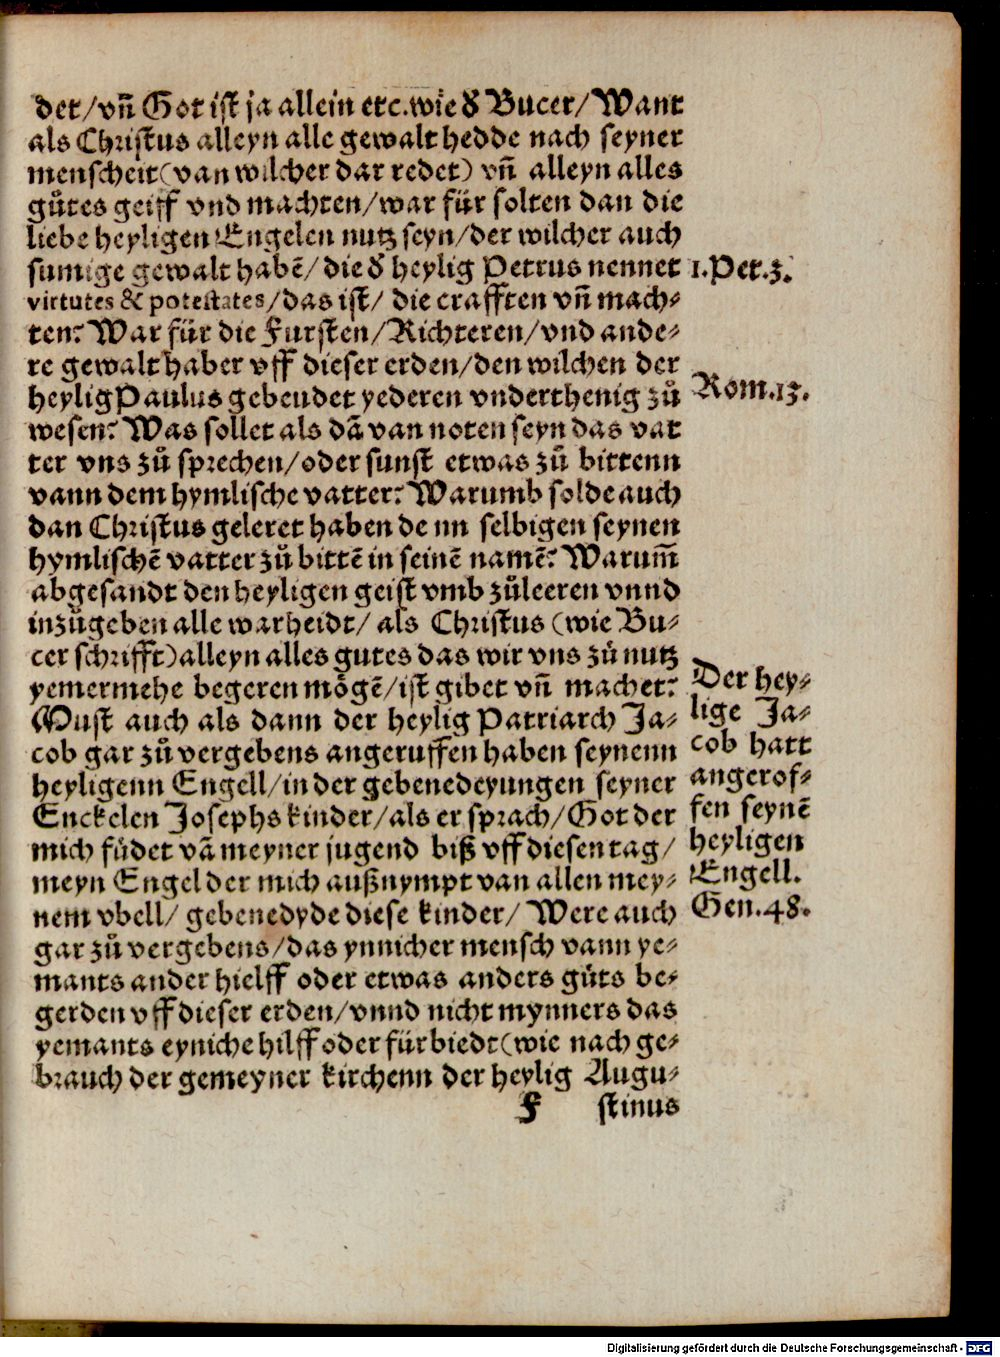 det/vñ Got ist ja allein etc. wie d Bucer/Want
als Christus alleyn alle gewalt hedde nach seyner
menscheit (van wilcher dar redet) vñ alleyn alles
gůtes geiff vnd machten/war für solten dan die
liebe heyligen Engelen nutz seyn/der wilcher auch
sumige gewalt habē/die d heylig Petrus nennet
virtutes & potestates/das ist/ die crafften vñ mach-
ten? War für die Fursten/Richteren/vnd ande-
re gewalt haber vff dieser erden/den wilchen der
heylig Paulus gebeudet yederen vnderthenig zů
wesen? Was sollet als dā van noten seyn das vat
ter vns zů sprechen/oder sunst etwas zů bittenn
vann dem hymlische vatter? Warumb solde auch
dan Christus geleret haben de nn selbigen seynen
hymlischē vatter zů bittē in seinē namē? Warum̄
abgesandt den heyligen geist vmb zůleeren vnnd
inzůgeben alle warheidt/ als Christus (wie Bu-
cer schrifft) alleyn alles gutes das wir vns zů nutz
yemermehe begeren mögē/ist gibet vñ machet?
Must auch als dann der heylig Patriarch Ja-
cob gar zů vergebens angeruffen haben seynenn
heyligenn Engell/in der gebenedeyungen seyner
Enckelen Josephs kinder/als er sprach/Got der
mich fůdet vā meyner jugend biß vff diesen tag/
meyn Engel der mich außnympt van allen mey-
nem vbell/ gebenedyde diese kinder/ Were auch
gar zů vergebens/das ynnicher mensch vann ye-
mants ander hielff oder etwas anders gůts be-
gerden vff dieser erden/vnnd nicht mynners das
yemants eyniche hilff oder fürbiedt (wie nach ge-
brauch der gemeyner kirchenn der heylig Augu-
F stinus
1. Pet. 3.
Rom. 13.
Der hey-
lige Ja-
cob hatt
angerof-
fen seynē
heyligen
Engell.
Gen. 48.
Digitalisierung gefördert durch die Deutsche Forschungsgemeinschaft - DFG